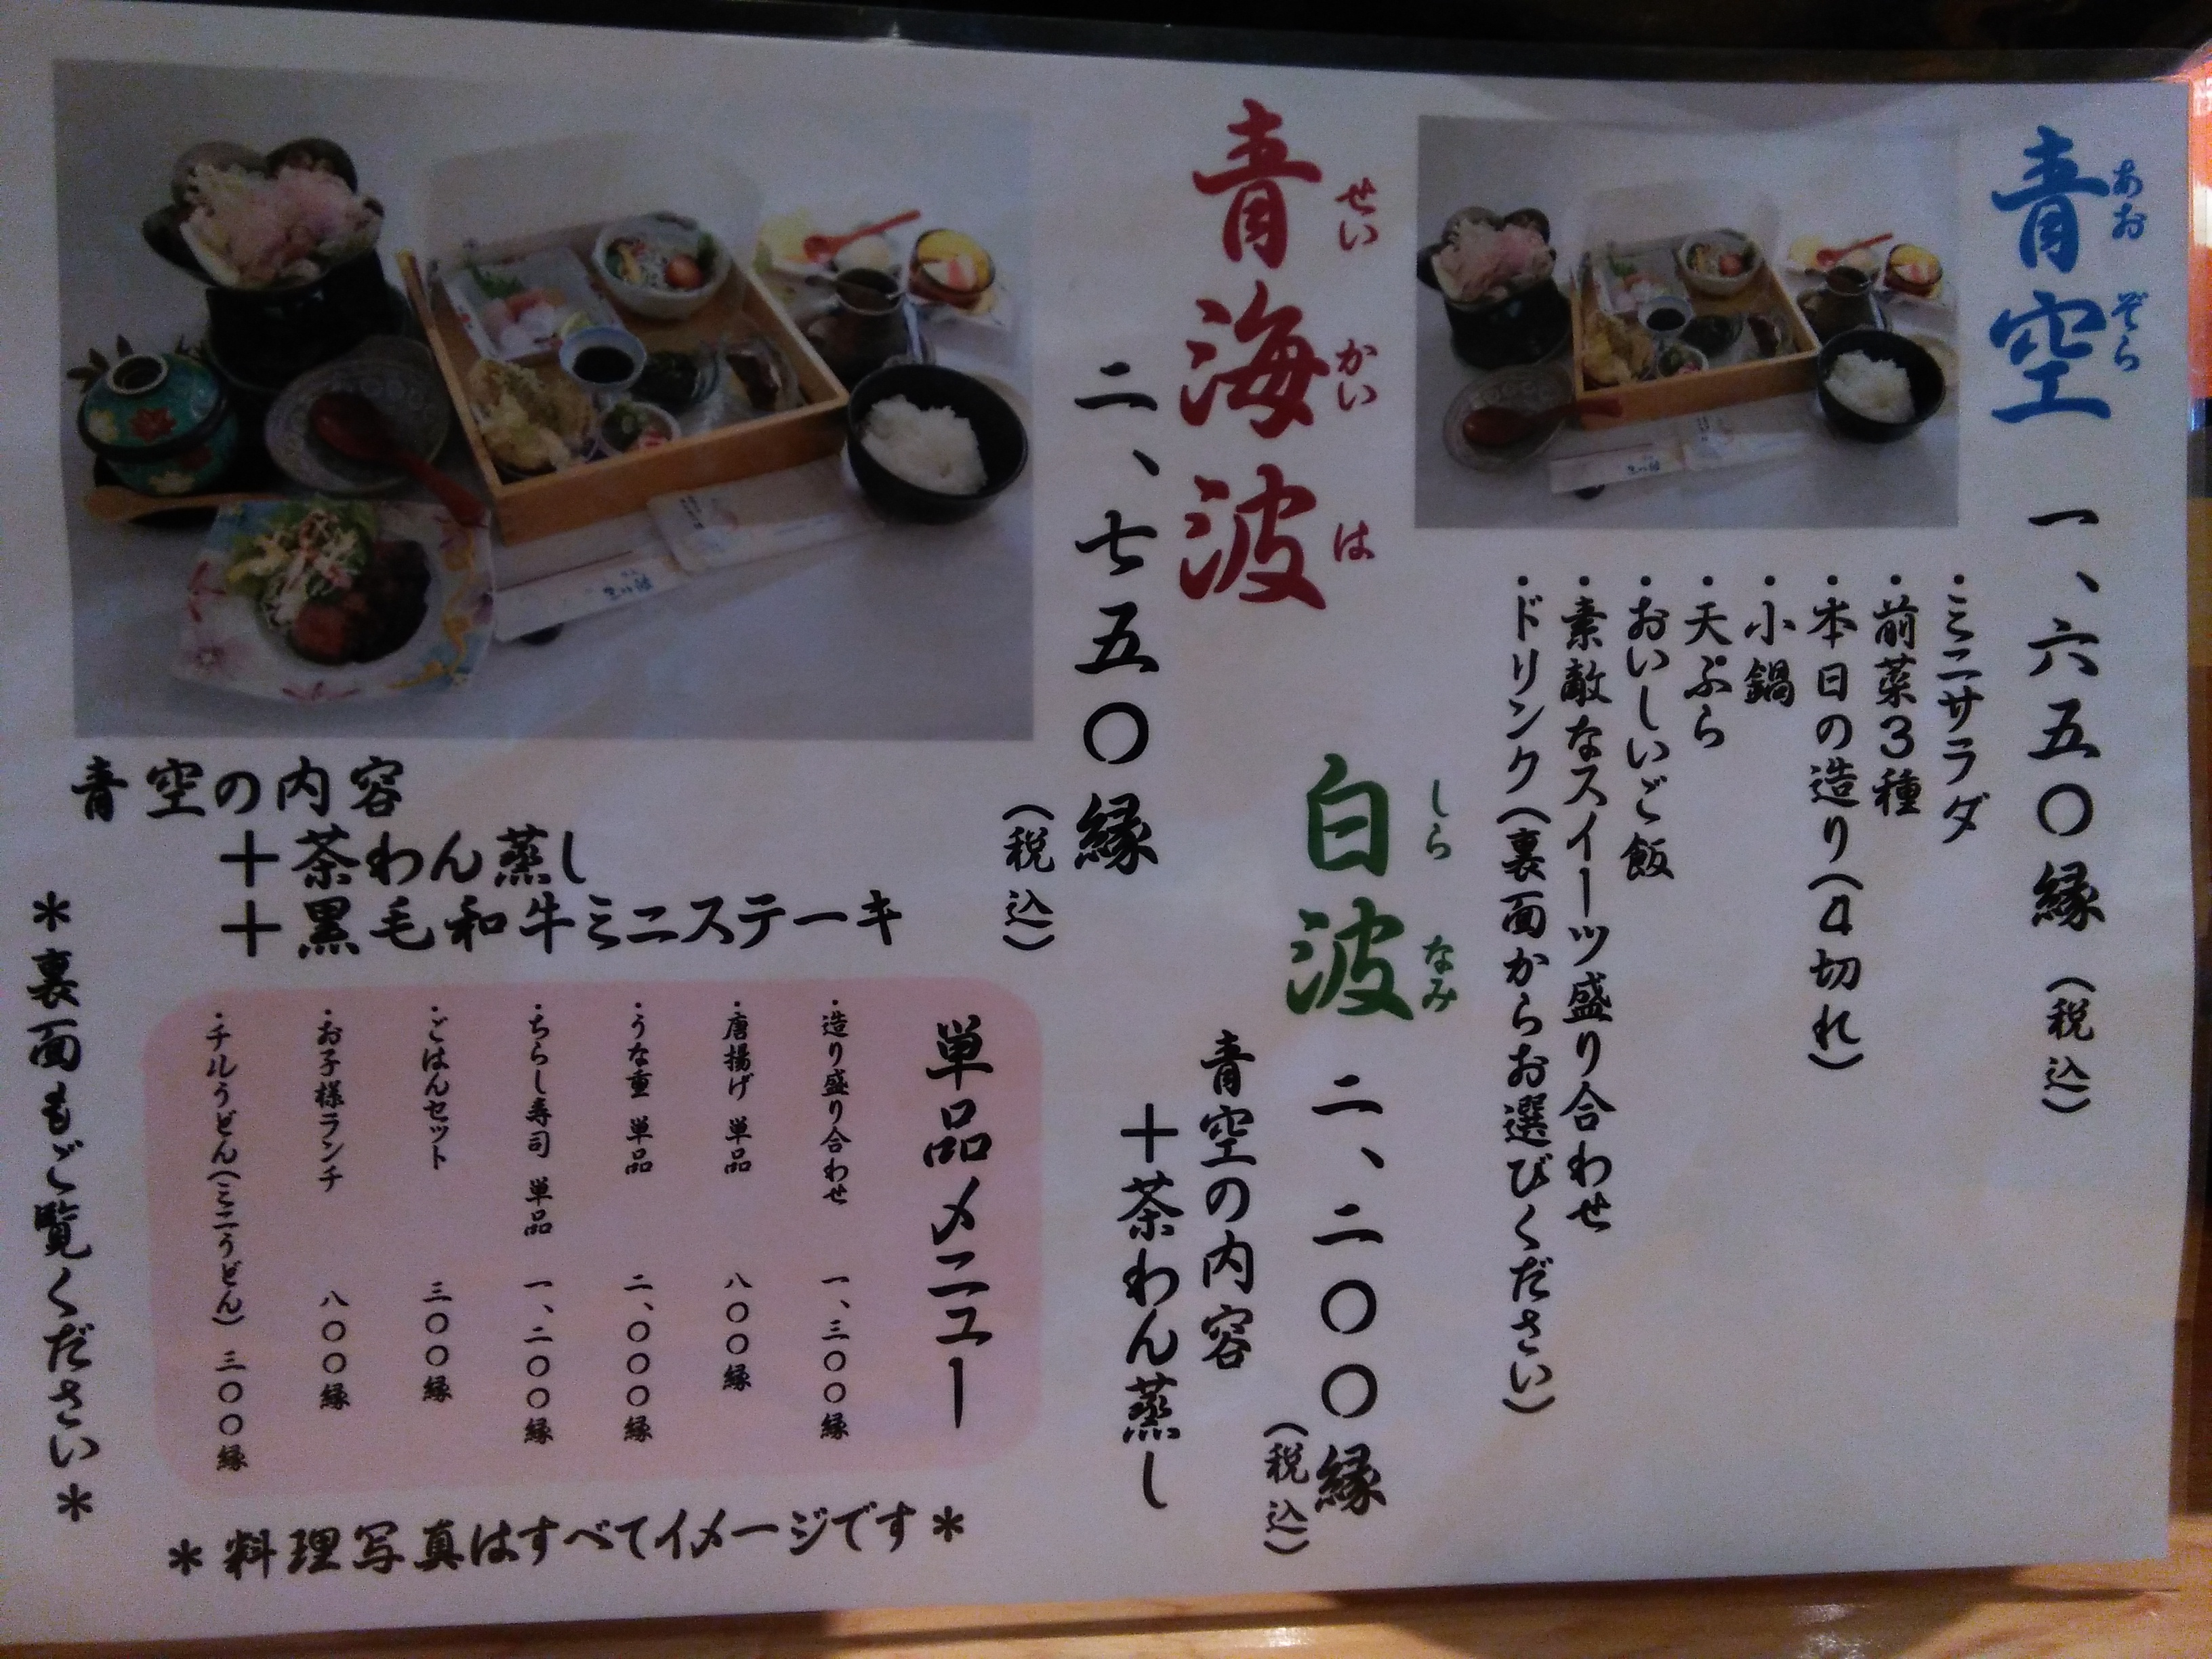 青空
あおぞら
一、六五〇縁(税込)
・ミニサラダ
・前菜3種
・本日の造り(4切れ)
・小鍋
・天ぷら
・おいしいご飯
・素敵なスイーツ盛り合わせ
・ドリンク(裏面からお選びください)
白波
しらなみ
二、二〇〇縁
(税込)
青空の内容
＋茶わん蒸し
青海波
せいかいは
二、七五〇縁
(税込)
青空の内容
＋茶わん蒸し
＋黒毛和牛ミニステーキ
単品メニュー
・造り盛り合わせ 一、三〇〇縁
・唐揚げ 単品 八〇〇縁
・うな重 単品 二、〇〇〇縁
・ちらし寿司 単品 一、二〇〇縁
・ごはんセット 三〇〇縁
・お子様ランチ 八〇〇縁
・チルうどん(ミニうどん) 三〇〇縁
＊料理写真はすべてイメージです＊
＊裏面もご覧ください＊